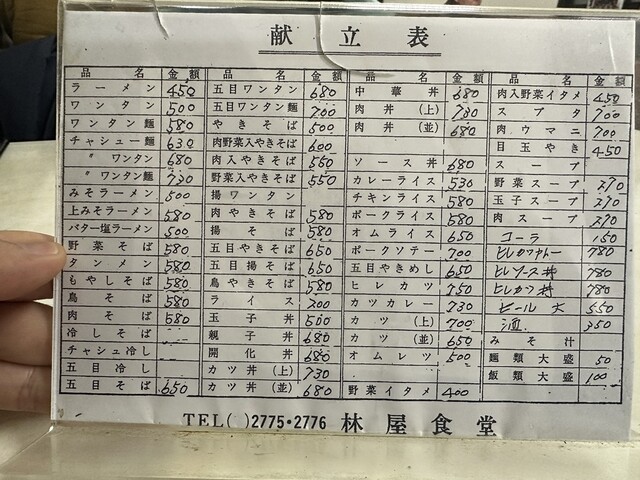 献立表
品名 金額
ラーメン 450
ワンタン 500
ワンタン麺 580
チャシュー麺 630
〃 ワンタン 680
〃 ワンタン麺 730
みそラーメン 500
上みそラーメン 580
バター塩ラーメン 500
野菜そば 580
タンメン 580
もやしそば 580
鳥そば 580
肉そば 580
冷しそば
チャシュ冷し
五目冷し
五目そば 650
品名 金額
五目ワンタン 680
五目ワンタン麺 700
やきそば 500
肉野菜入やきそば 600
肉入やきそば 560
野菜入やきそば 550
揚ワンタン
肉やきそば 580
揚そば 580
五目やきそば 650
五目揚そば 650
鳥やきそば 580
ライス 200
玉子丼 500
親子丼 680
開化丼 680
カツ丼(上) 730
カツ丼(並) 680
品名 金額
中華丼 680
肉丼(上) 730
肉丼(並) 680
ソース丼 680
カレーライス 530
チキンライス 580
ポークライス 580
オムライス 650
ポークソテー 700
五目やきめし 650
ヒレカツ 750
カツカレー 730
カツ(上) 700
カツ(並) 650
オムレツ 500
野菜イタメ 400
品名 金額
肉入野菜イタメ 450
スブタ 700
肉ウマニ 700
目玉やき 450
スープ
野菜スープ 270
玉子スープ 270
肉スープ 270
コーラ 150
780
ヒレソース丼 780
ヒレカツ丼 780
ビール大 550
酒 350
みそ汁
麺類大盛 50
飯類大盛 100
TEL( )2775・2776 林屋食堂